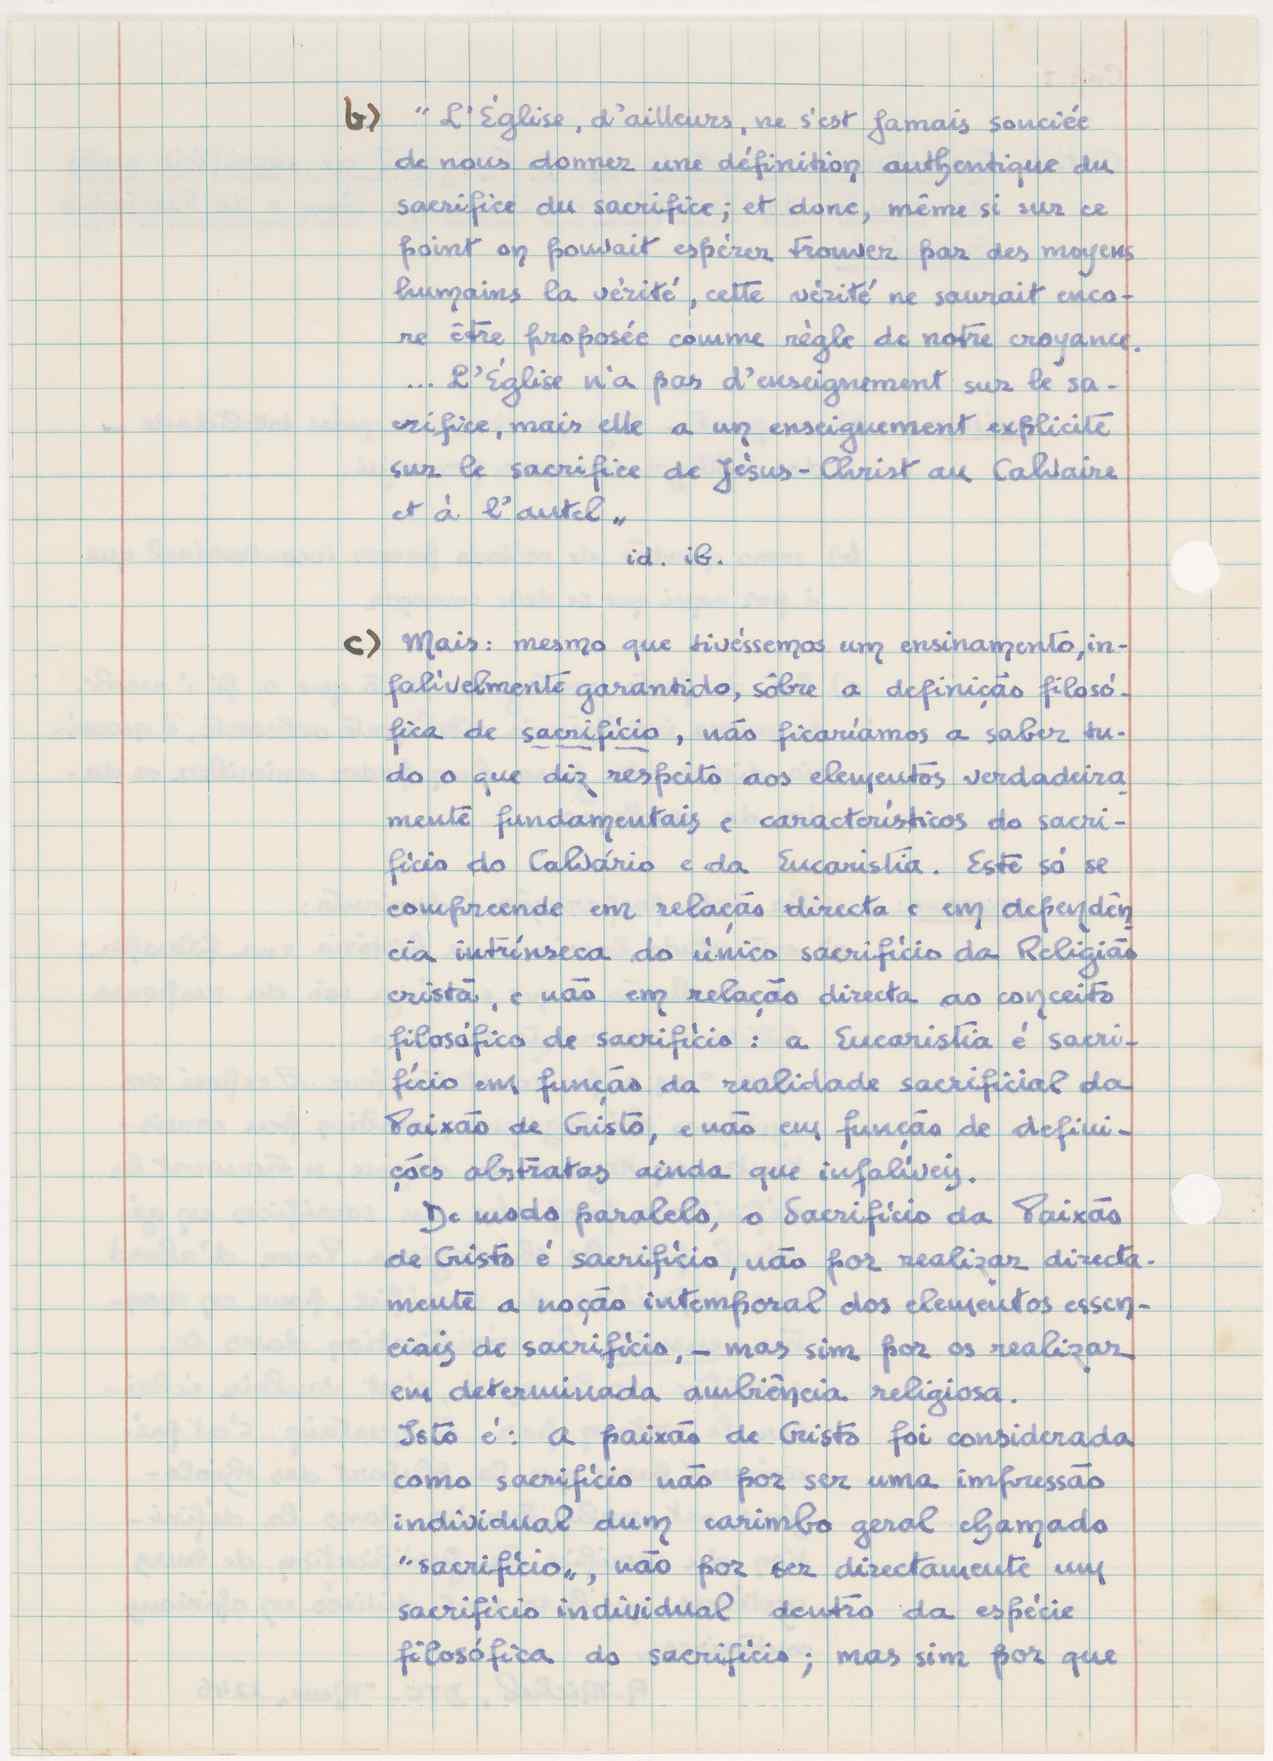 b) "L'Église, d'ailleurs, ne s'est jamais souciée
de nous donner une définition authentique du
sacrifice du sacrifice; et donc, même si sur ce
point on pouvait espérer trouver par des moyens
humains la vérité, cette vérité ne saurait enco-
re être proposée comme règle de notre croyance.
... L'Église n'a pas d'enseignement sur le sa-
crifice, mais elle a un enseignement explicite
sur le sacrifice de Jésus-Christ au Calvaire
et à l'autel„
id. ib.
c) Mais: mesmo que tivéssemos um ensinamento, in-
falívelmente garantido, sôbre a definição filosó-
fica de sacrifício, não ficaríamos a saber tu-
do o que diz respeito aos elementos verdadeira
mente fundamentais e característicos do sacri-
fício do Calvário e da Eucaristia. Este só se
compreende em relação directa e em dependên
cia intrínseca do único sacrifício da Religião
cristã, e não em relação directa ao conceito
filosófico de sacrifício: a Eucaristia é sacri-
fício em função da realidade sacrificial da
Paixão de Cristo, e não em função de defini-
ções abstratas ainda que infalíveis.
De modo paralelo, o Sacrifício da Paixão
de Cristo é sacrifício, não por realizar directa-
mente a noção intemporal dos elementos essen-
ciais de sacrifício, - mas sim por os realizar
em determinada ambiência religiosa.
Isto é: a paixão de Cristo foi considerada
como sacrifício não por ser uma impressão
individual dum carimbo geral chamado
"sacrifício„, não por ser directamente um
sacrifício individual dentro da espécie
filosófica do sacrifício; mas sim por que